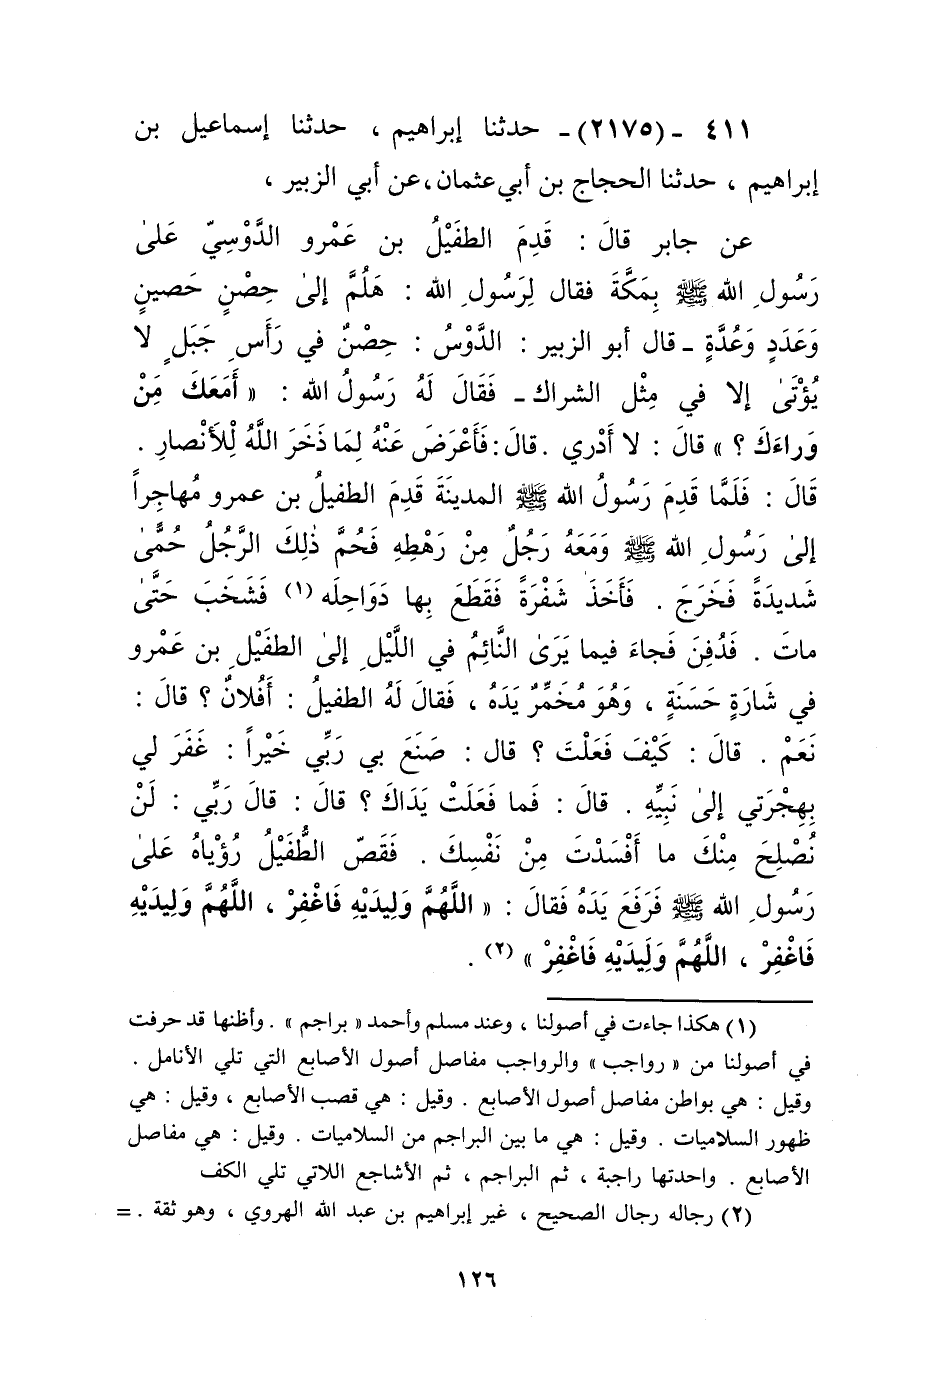 ٤١١ - (٢١٧٥) - حدثنا إبراهيم ، حدثنا إسماعيل بن
إبراهيم ، حدثنا الحجاج بن أبي عثمان ، عن أبي الزبير ،
عن جابر قالَ : قَدِمَ الطفَيْلُ بن عَمْرو الدَّوْسِيّ عَلىٰ
رَسُولِ الله ﷺ بِمَكَّةَ فقال لِرَسُولِ الله : هَلُمَّ إلىٰ حِصْنٍ حَصينٍ
وَعَدَدٍ وَعُدَّةٍ - قال أبو الزبير : الدَّوْسُ : حِصْنٌ في رَأْسِ جَبَلٍ لا
يُؤْتَىٰ إلا في مِثْل الشراك - فَقَالَ لَهُ رَسُولُ الله : « أَمَعَكَ مَنْ
وَراءَكَ ؟ » قالَ : لا أَدْري . قالَ : فَأَعْرَضَ عَنْهُ لِمَا ذَخَرَ اللَّهُ لِلْأَنْصارِ .
قَالَ : فَلَمَّا قَدِمَ رَسُولُ الله ﷺ المدينَةَ قَدِمَ الطفيلُ بن عمرو مُهاجِراً
إلىٰ رَسُولِ الله ﷺ وَمَعَهُ رَجُلٌ مِنْ رَهْطِهِ فَحُمَّ ذٰلِكَ الرَّجُلُ حُمًّىٰ
شَديدَةً فَخَرَجَ . فَأَخَذَ شَفْرَةً فَقَطَعَ بِها دَوَاحِلَه (١) فَشَخَبَ حَتَّىٰ
ماتَ . فَدُفِنَ فَجاءَ فيما يَرَىٰ النَّائِمُ في اللَّيْلِ إلىٰ الطفَيْلِ بن عَمْرو
في شَارَةٍ حَسَنَةٍ ، وَهُوَ مُخَمِّرٌ يَدَهُ ، فَقالَ لَهُ الطفيلُ : أَفُلانٌ ؟ قالَ :
نَعَمْ . قالَ : كَيْفَ فَعَلْتَ ؟ قال : صَنَعَ بي رَبِّي خَيْراً : غَفَرَ لي
بِهِجْرَتي إلىٰ نَبِيِّهِ . قالَ : فَما فَعَلَتْ يَدَاكَ ؟ قالَ : قالَ رَبِّي : لَنْ
نُصْلِحَ مِنْكَ ما أَفْسَدْتَ مِنْ نَفْسِكَ . فَقَصّ الطُّفَيْلُ رُؤْياهُ عَلىٰ
رَسُولِ الله ﷺ فَرَفَعَ يَدَهُ فَقالَ : « اللَّهُمَّ وَلِيدَيْهِ فَاغْفِرْ ، اللَّهُمَّ وَلِيدَيْهِ
فَاغْفِرْ ، اللَّهُمَّ وَلِيَدَيْهِ فَاغْفِرْ » (٢) .
(١) هكذا جاءت في أصولنا ، وعند مسلم وأحمد « براجم » . وأظنها قد حرفت
في أصولنا من « رواجب » والرواجب مفاصل أصول الأصابع التي تلي الأنامل .
وقيل : هي بواطن مفاصل أصول الأصابع . وقيل : هي قصب الأصابع ، وقيل : هي
ظهور السلاميات . وقيل : هي ما بين البراجم من السلاميات . وقيل : هي مفاصل
الأصابع . واحدتها راجبة ، ثم البراجم ، ثم الأشاجع اللاتي تلي الكف
(٢) رجاله رجال الصحيح ، غير إبراهيم بن عبد الله الهروي ، وهو ثقة . =
١٢٦